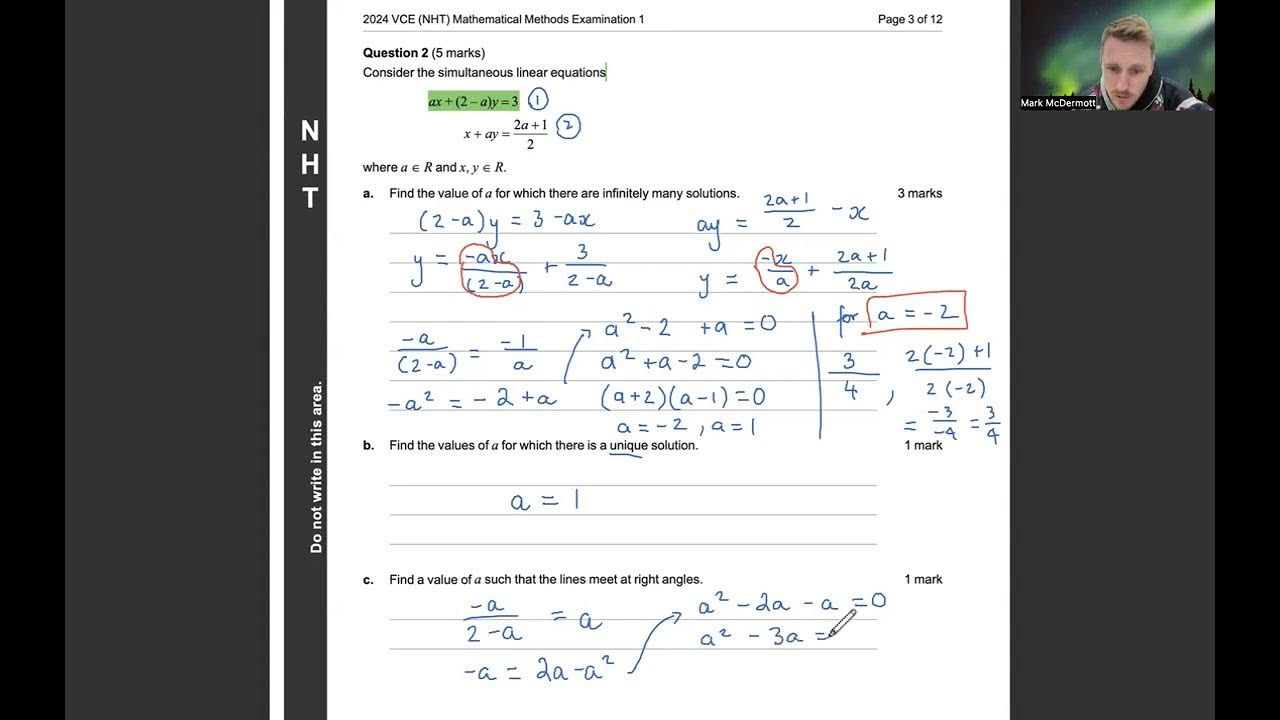 2024 VCE (NHT) Mathematical Methods Examination 1 Page 3 of 12
Mark McDermott
N
H
T
Do not write in this area.
Question 2 (5 marks)
Consider the simultaneous linear equations
ax + (2 – a)y = 3 ①
x + ay = (2a + 1)/2 ②
where a ∈ R and x, y ∈ R.
a. Find the value of a for which there are infinitely many solutions. 3 marks
(2-a)y = 3 - ax
y = -ax/(2-a) + 3/(2-a)
-a/(2-a) = -1/a
-a² = -2 + a
a² - 2 + a = 0
a² + a - 2 = 0
(a+2)(a-1) = 0
a = -2, a = 1
ay = (2a+1)/2 - x
y = -x/a + (2a+1)/2a
for a = -2
3/4 , (2(-2)+1)/(2(-2))
= -3/-4 = 3/4
b. Find the values of a for which there is a unique solution. 1 mark
a = 1
c. Find a value of a such that the lines meet at right angles. 1 mark
-a/(2-a) = a
-a = 2a - a²
a² - 2a - a = 0
a² - 3a =